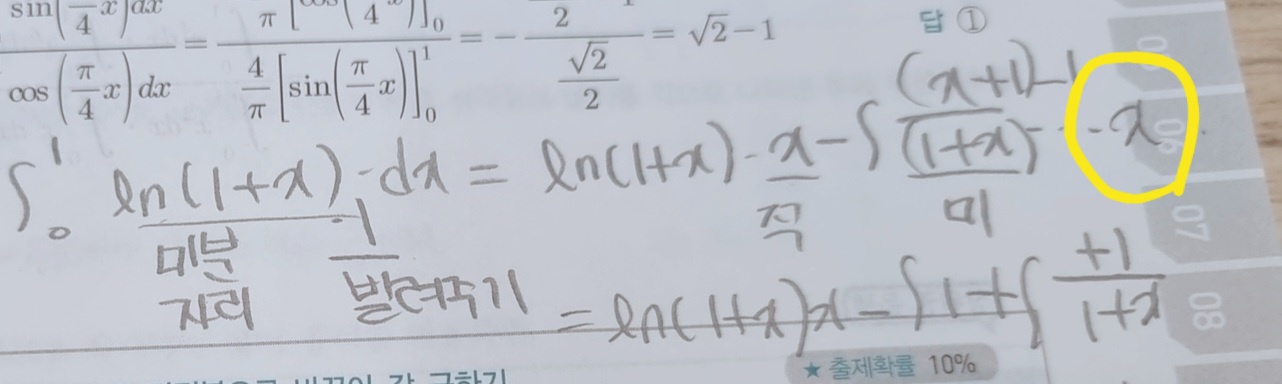 sin(π/4 x)dx / cos(π/4 x)dx = π[cos(π/4 x)]₀ / 4/π[sin(π/4 x)]₀¹ = − 2 / √2/2 = √2−1
답 ①
∫₀¹ ln(1+x)·dx = ln(1+x)·x−∫ (x+1)−1 / (1+x) ·x
미분 ·1 적 미
자리 발려주기 = ln(1+x)x−∫1+∫ +1/1+x
06
07
08
★ 출제확률 10%